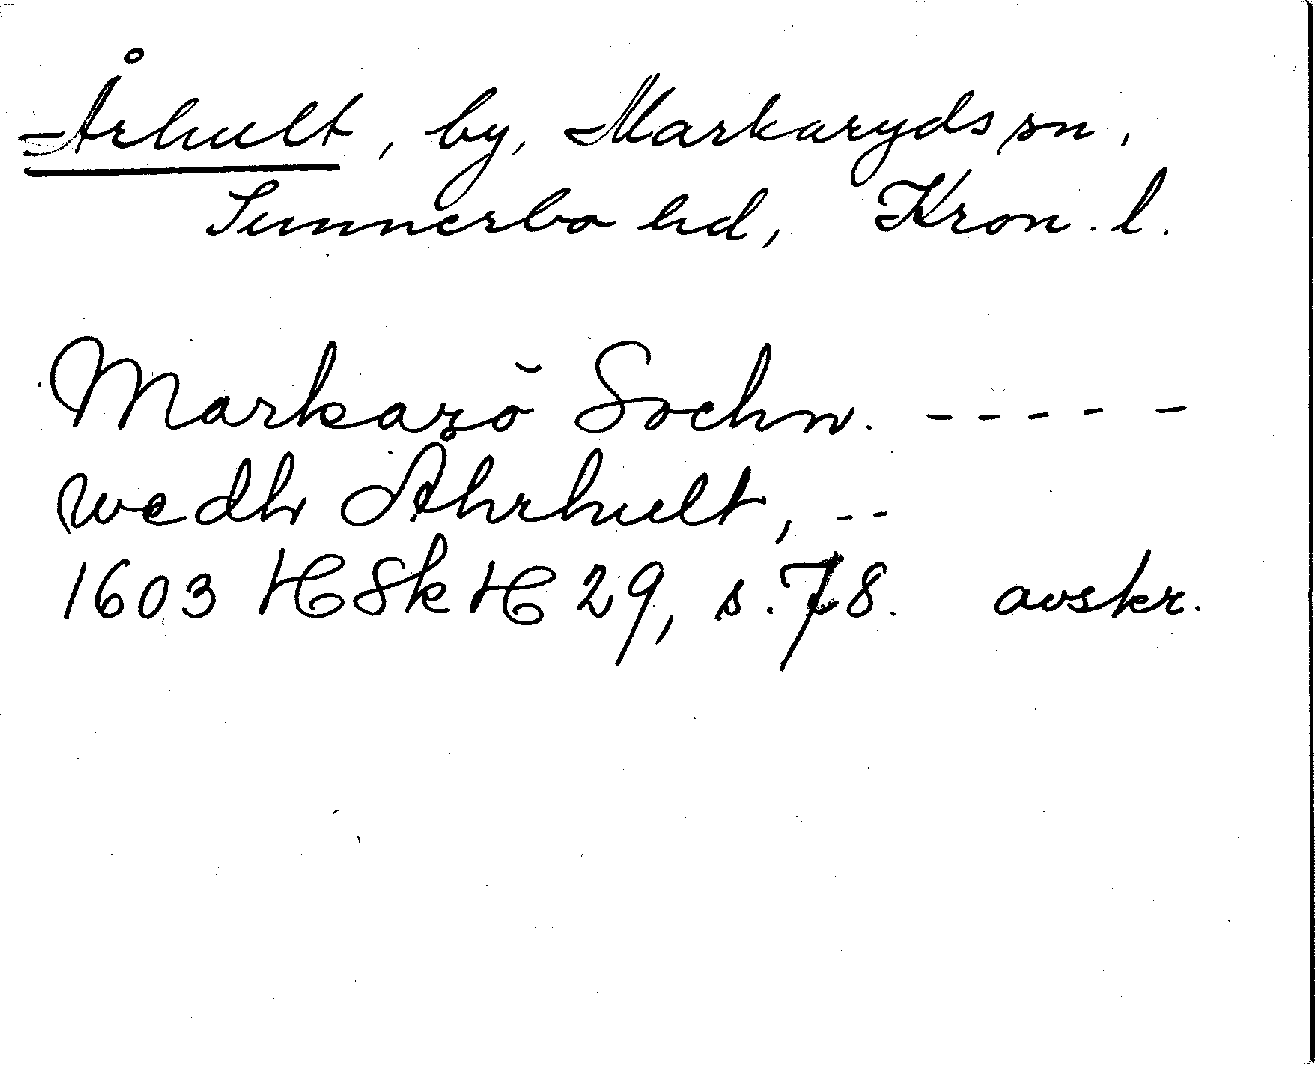 Århult, by, Markaryds sn.
Sunnerbo hd, Kron. l.
Markarö Sochn. - - - - -
wedh Ahrhult, - -
1603 HSkH 29, s. 78. avskr.